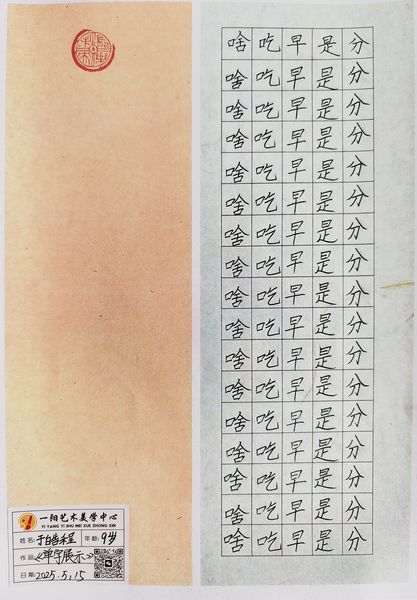 啥吃早是分
啥吃早是分
啥吃早是分
啥吃早是分
啥吃早是分
啥吃早是分
啥吃早是分
啥吃早是分
啥吃早是分
啥吃早是分
啥吃早是分
啥吃早是分
啥吃早是分
啥吃早是分
啥吃早是分
啥吃早是分
啥吃早是分
一阳艺术美学中心
YI YANG YI SHU MEI XUE ZHONG XIN
姓名:于皓程 年龄:9岁
作品:《单字展示》
日期:2025.5.15